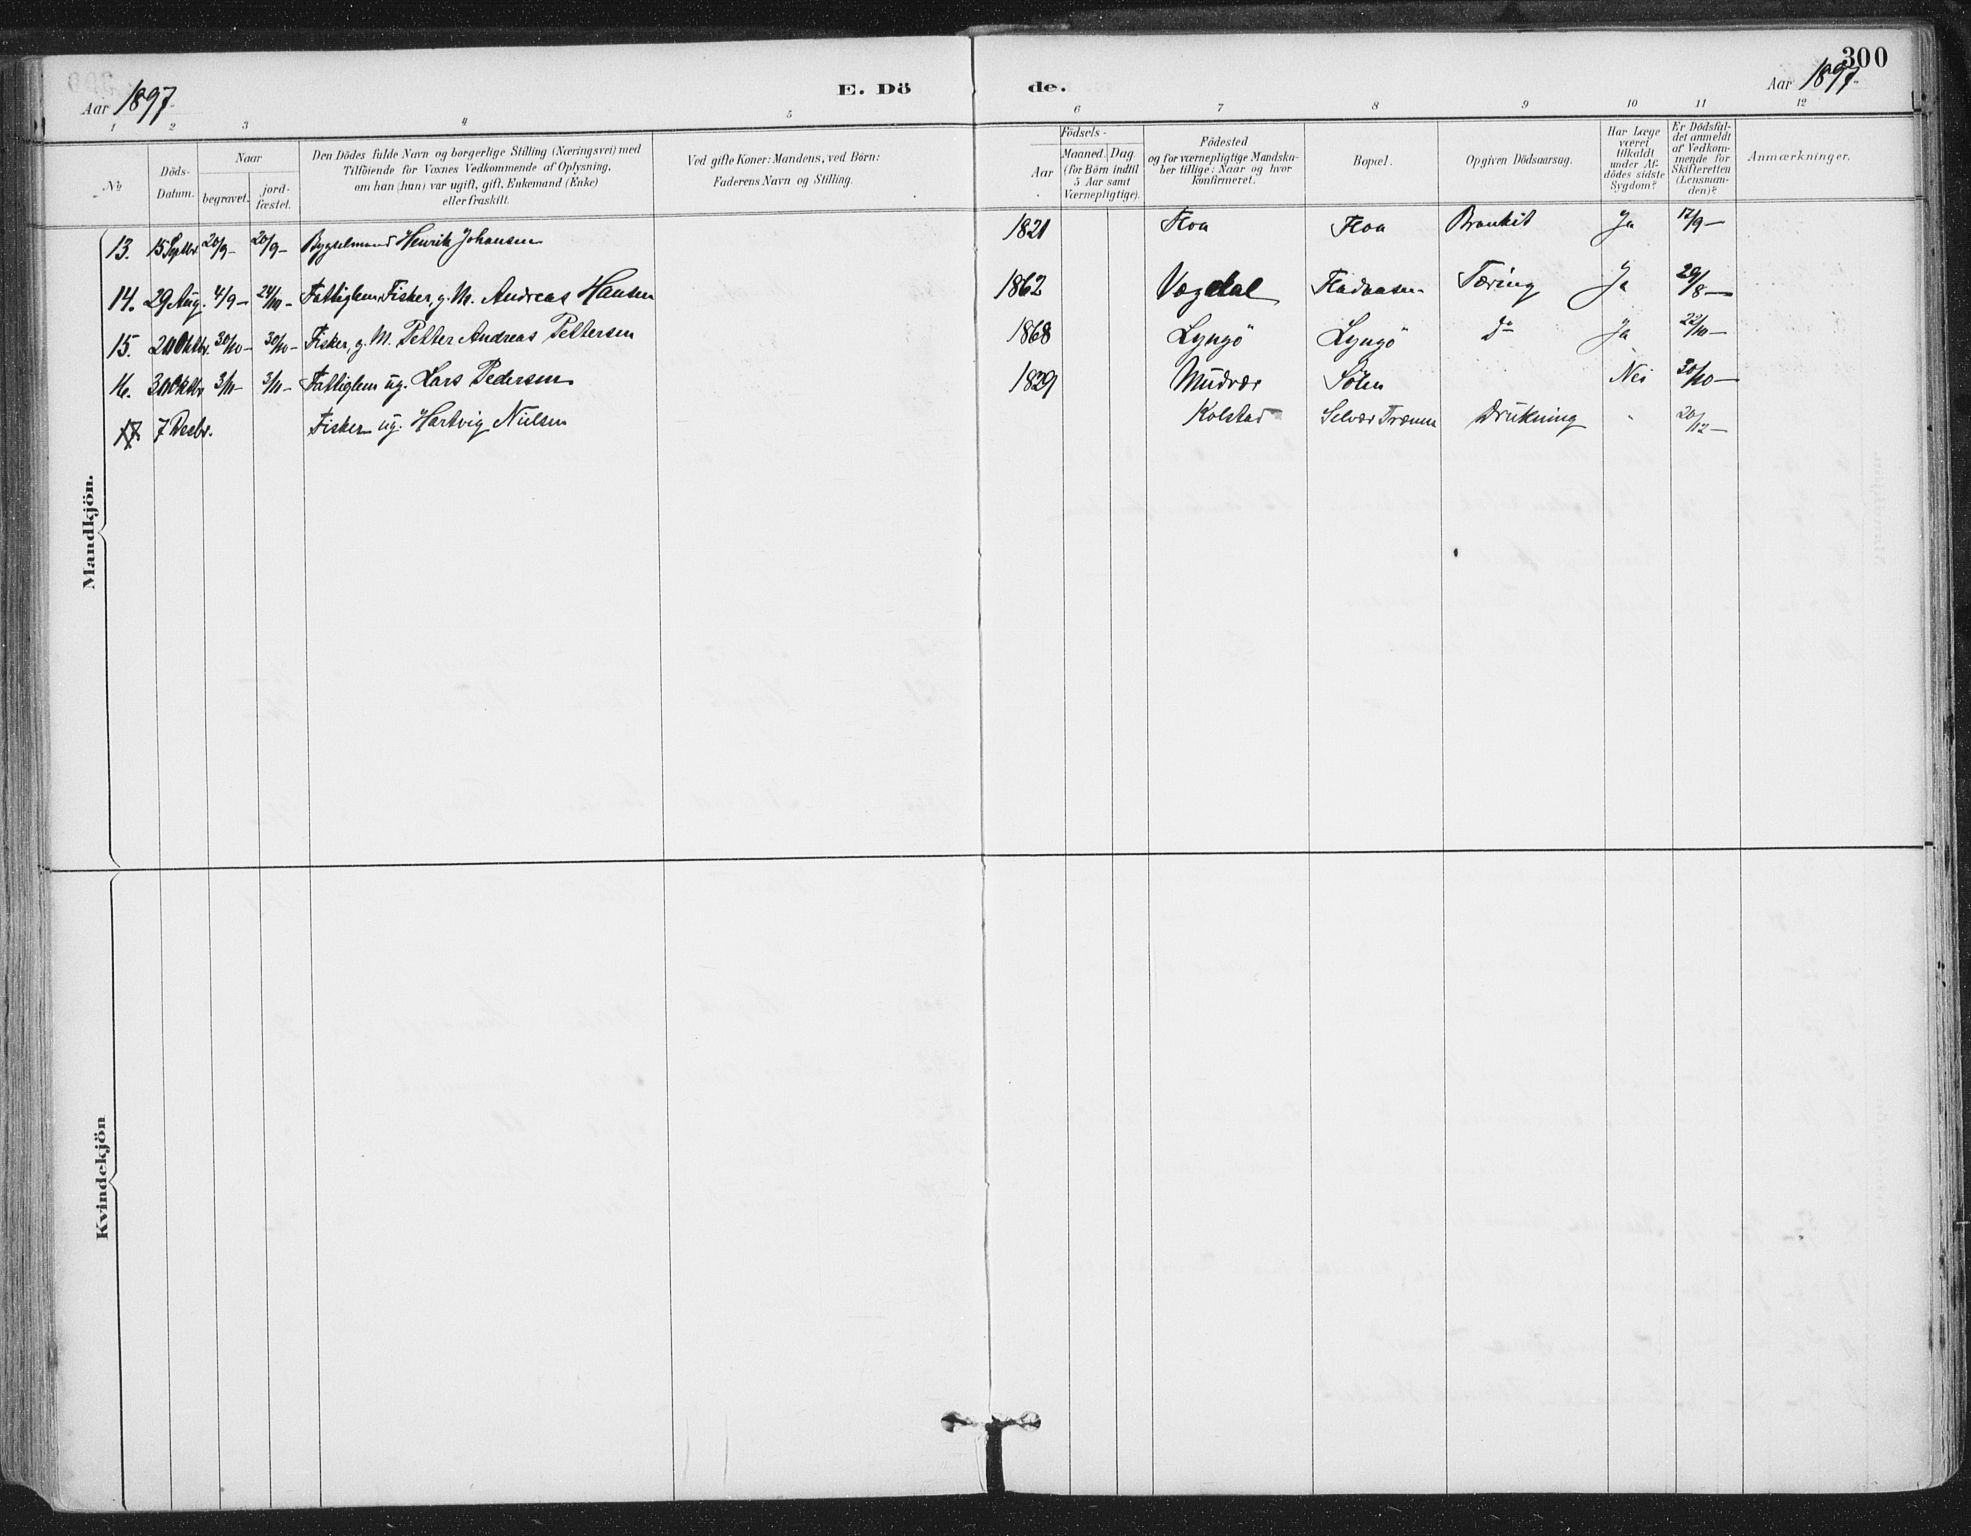 300
Aar 1897.
E. Dö
de.
Aar 1897.
1 2 3 4 5 6 7 8 9 10 11 12
No
Döds-
Datum.
Naar
begravet.
jord-
fæstet.
Den Dödes fulde Navn og borgerlige Stilling (Næringsvei) med
Tilföiende for Voxnes Vedkommende af Oplysning,
om han (hun) var ugift, gift, Enkemand (Enke)
eller fraskilt.
Ved gifte Koner: Mandens, ved Börn:
Faderens Navn og Stilling.
Födsels-
Aar
Maaned. Dag
(for Börn indtil
5 Aar samt
Værnepligtige).
Födested
og for værnepligtige Mandska-
ber tillige: Naar og hvor
konfirmeret.
Bopæl.
Opgiven Dödsaarsag.
Har Læge
været
tilkaldt
under Af-
dödes sidste
Sygdom?
Er Dödsfal-
det anmeldt
af Vedkom-
mende for
Skifteretten
(Lensman-
den)?
Anmærkninger.
Mandkjön.
13. 15 Septbr. 20/9- 20/9- Bygselmand Henrik Johansen 1821 Floa Floa Bronkit Ja 17/9-
14. 29 Aug. 4/9- 24/10- Fattiglem, Fisker, g. M. Andreas Hansen 1862 Vægdal Tæring Ja 29/8-
15. Oktbr. 30/10- 30/10- Fisker, g. M. Petter Andreas Pettersen 1868 Lyngö Lyngö Do Ja 22/10-
16. Oktbr 3/11- 3/11- Fattiglem ug. Lars Pedersen 1829 Mudvær Sölen Nei 30/10-
17. 7 Decbr. Fisker ug. Hartvig Nielsen Kolstad Selvær Trænen Drukning - 20/12-
Kvindekjön